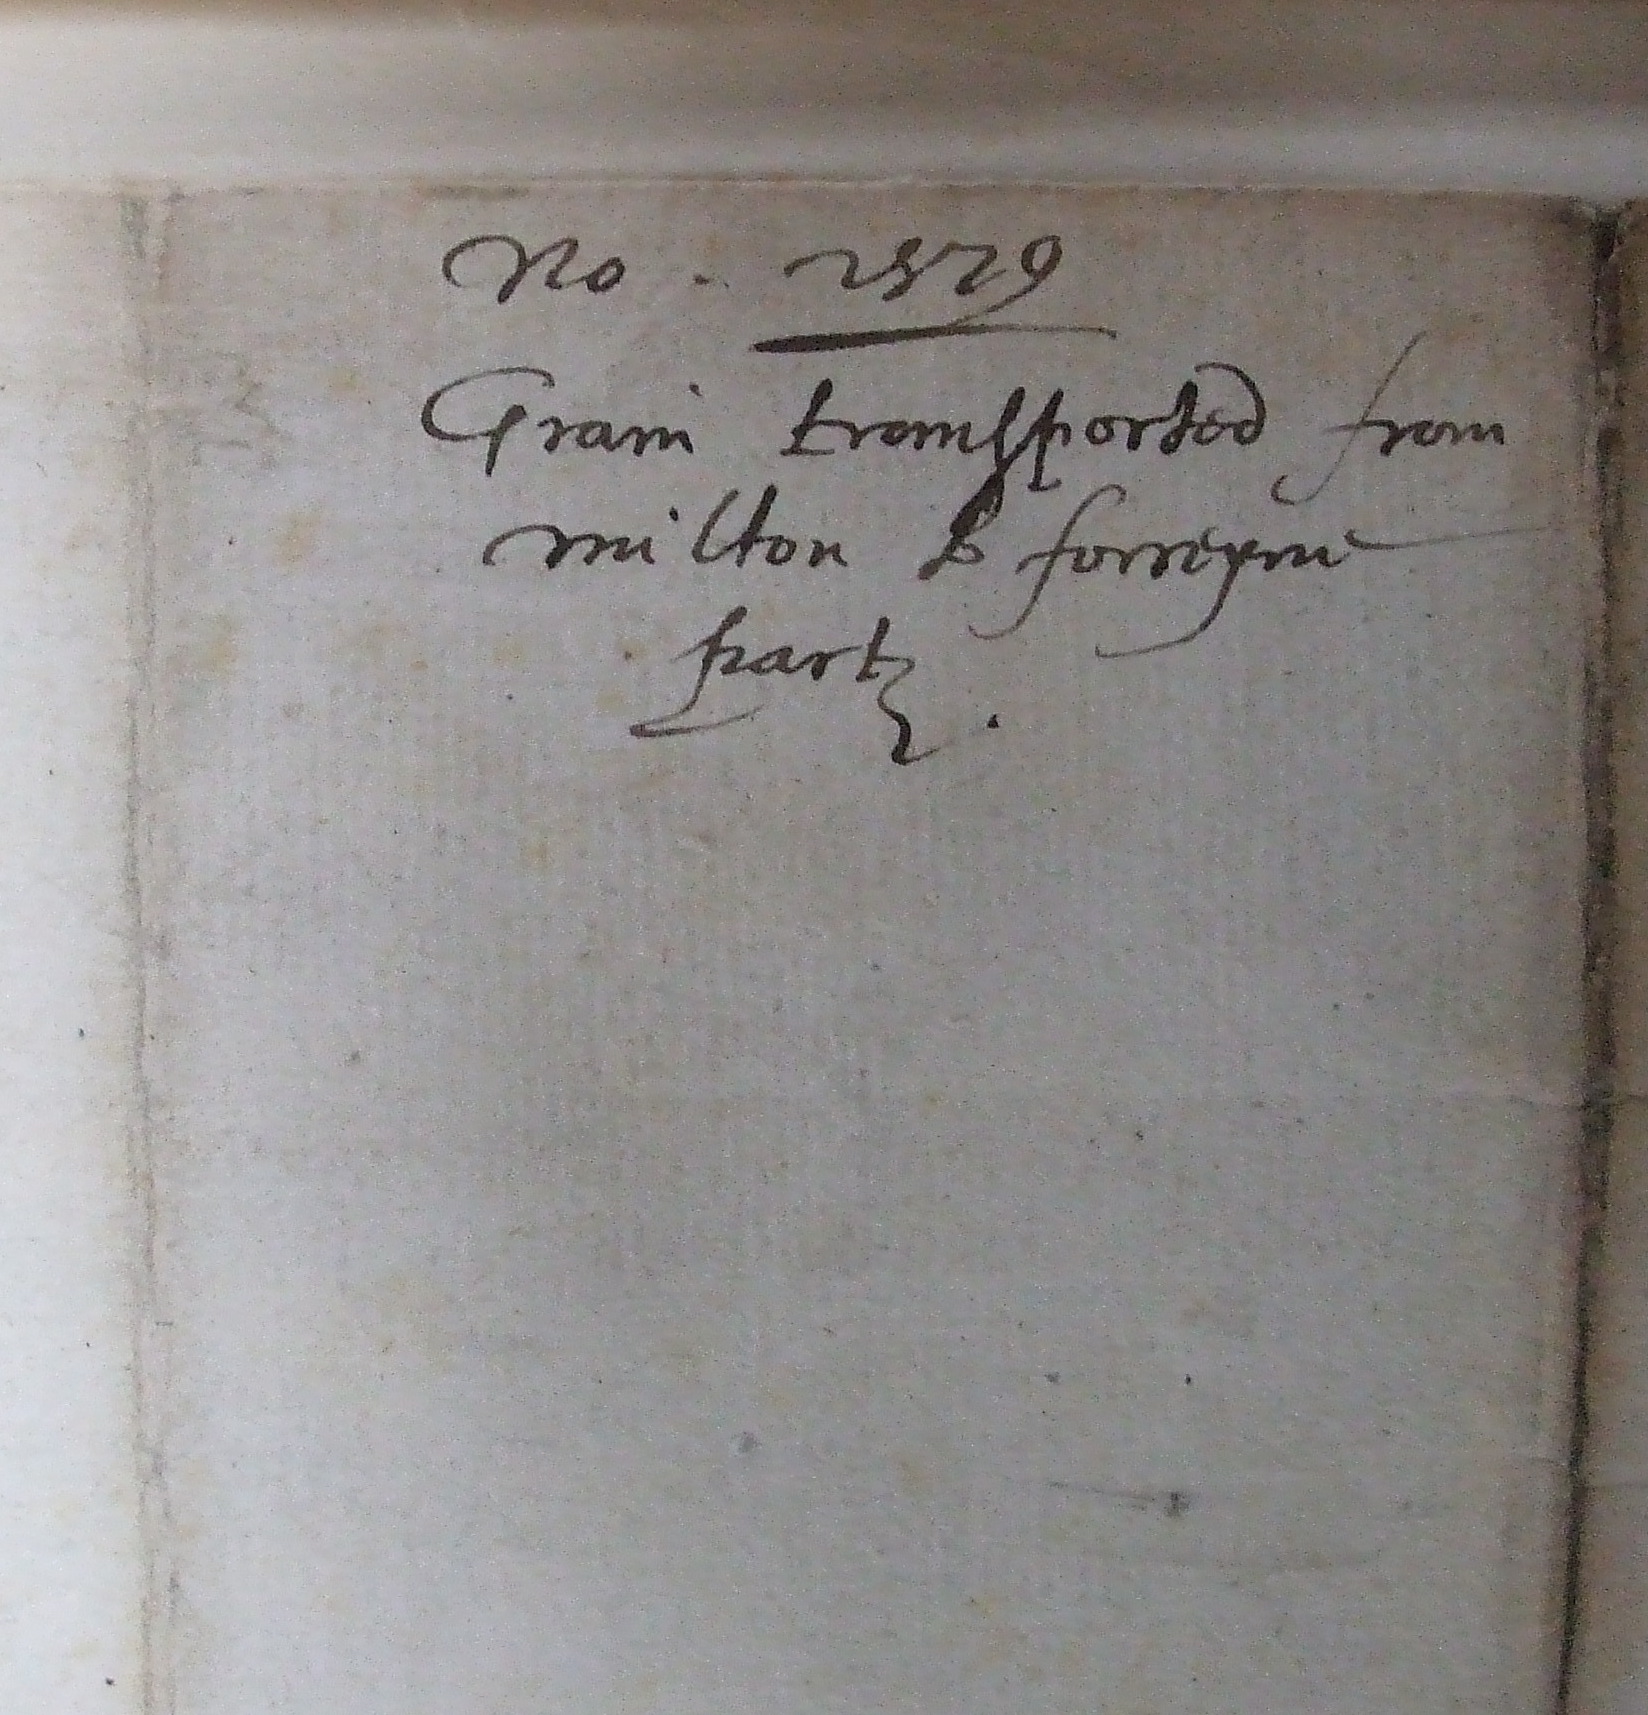 No . 1579
Grain transported from
milton to forreyne
partꝭ .